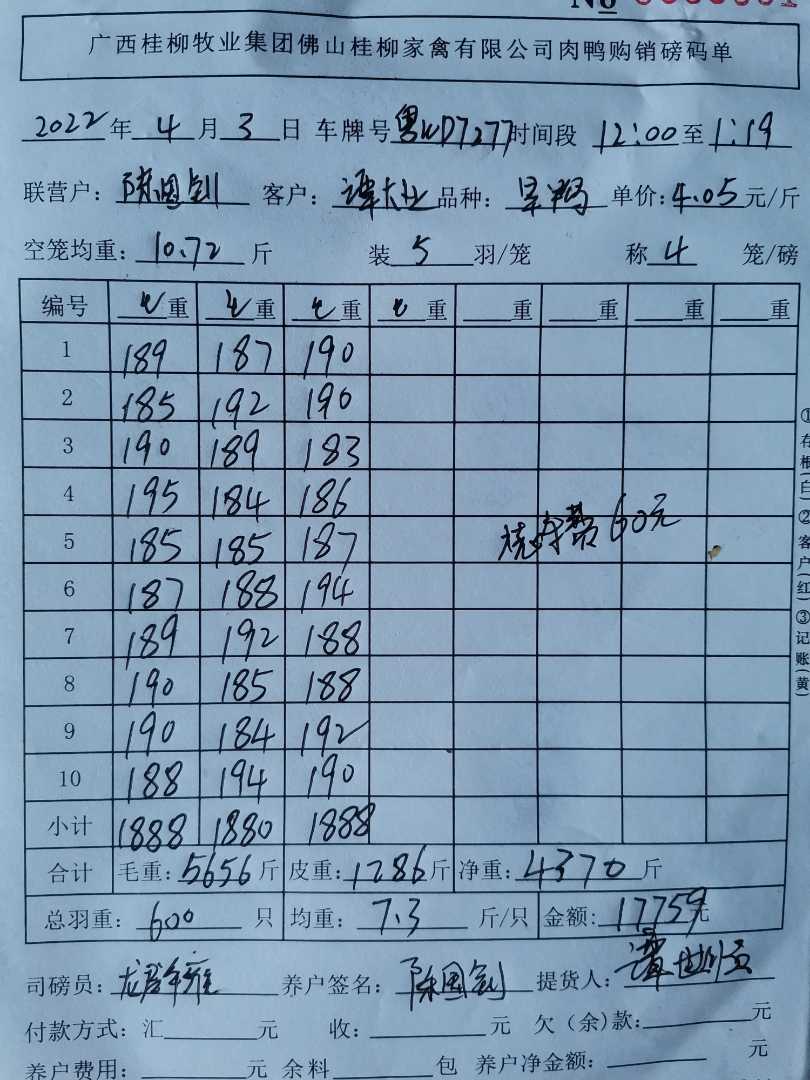 No
广西桂柳牧业集团佛山桂柳家禽有限公司肉鸭购销磅码单
2022年4月3日 车牌号 粤 D7277 时间段 12:00至1:19
联营户：陈国钊 客户：谭 品种： 鸭 单价：4.05元/斤
空笼均重：10.72斤 装5羽/笼 称4笼/磅
编号 毛重 毛重 毛重 毛重 重 重 重 重
1 189 187 190
2 185 192 190
3 190 189 183
4 195 184 186
5 185 185 187 烧 费60元
6 187 188 194
7 189 192 188
8 190 185 188
9 190 184 192
10 188 194 190
小计 1888 1880 1888
合计 毛重：5656斤 皮重：1286斤 净重：4370斤
总羽重：600只 均重：7.3斤/只 金额：17759元
司磅员：龙 养户签名：陈国钊 提货人：谭
付款方式：汇 元 收： 元 欠（余）款： 元
养户费用： 元 余料 包 养户净金额： 元
①存根(白)②客户(红)③记账(黄)